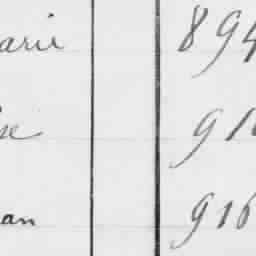 arie 894
se 91
an 916